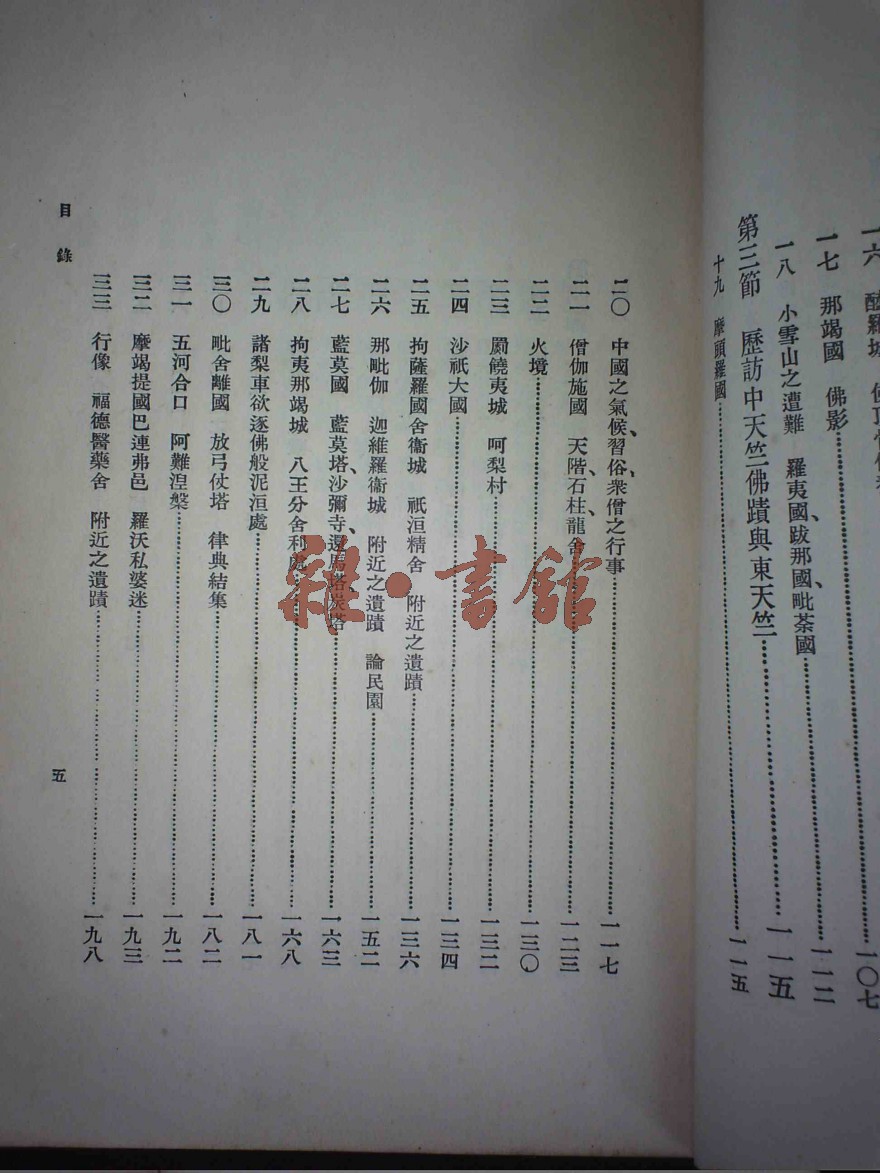 一六　醯羅城
一七　那竭國　佛影……一一二
一八　小雪山之遭難　羅夷國、跋那國、毗荼國
第三節　歷訪中天竺佛蹟與東天竺……一一五
十九　摩頭羅國……一一五
一〇七
二〇　中國之氣候、習俗、衆僧之行事……一一七
二一　僧伽施國　天階、石柱、龍舍……一二三
二二　火境……一三〇
二三　罽饒夷城　呵梨村……一三二
二四　沙祇大國……一三四
二五　拘薩羅國舍衞城　祇洹精舍　附近之遺蹟……一三六
二六　那毗伽　迦維羅衞城　附近之遺蹟　論民園……一五二
二七　藍莫國　藍莫塔、沙彌寺、還馬塔、炭塔……一六三
二八　拘夷那竭城　八王分舍利處……一六八
二九　諸梨車欲逐佛般泥洹處……一八一
三〇　毗舍離國　放弓仗塔　律典結集……一八二
三一　五河合口　阿難涅槃……一九二
三二　摩竭提國巴連弗邑　羅沃私婆迷……一九三
三三　行像　福德醫藥舍　附近之遺蹟……一九八
目錄
五
雜·書館